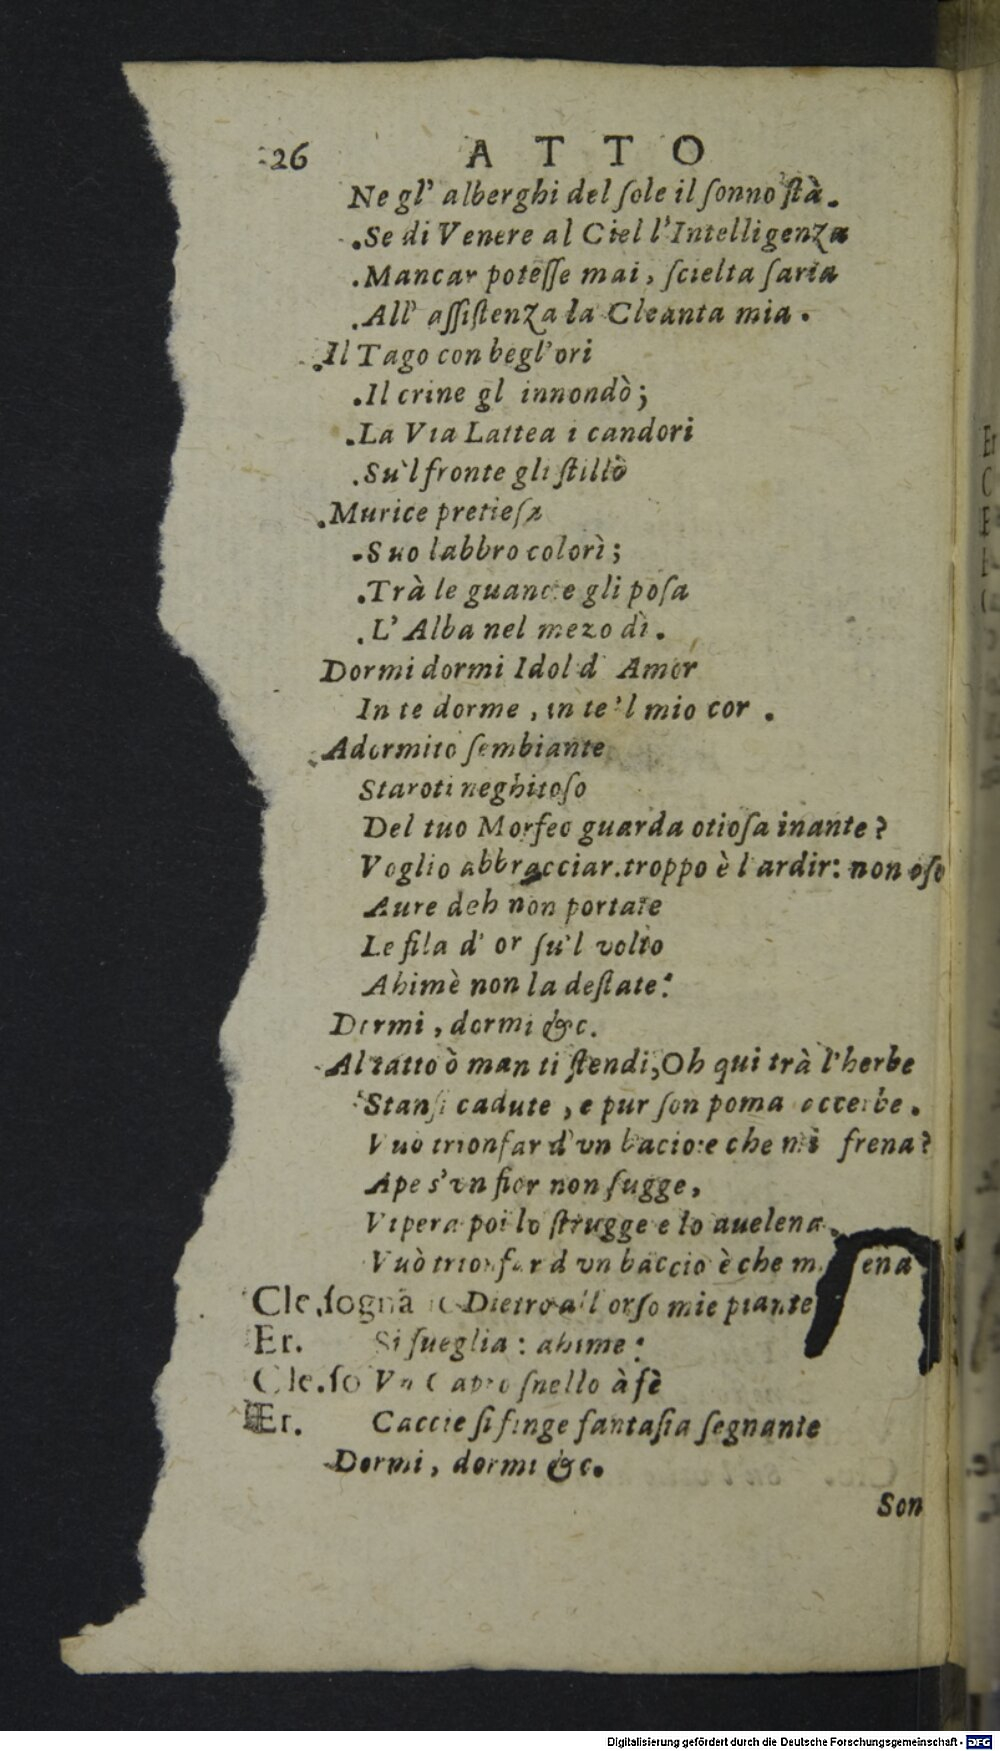 26 ATTO
Ne gl' alberghi del ſole il ſonno ſtà.
.Se di Venere al Ciel l'Intelligenza
.Mancar poteſſe mai, ſcielta ſaria
.All' aſſiſtenza la Cleanta mia.
.Il Tago con begl'ori
.Il crine gl innondò;
.La Via Lattea i candori
.Su'l fronte gli ſtillò
.Murice pretioſa
.Suo labbro colorì;
.Trà le guancie gli poſa
.L' Alba nel mezo dì.
Dormi dormi Idol d' Amor
In te dorme, in te'l mio cor.
Adormito ſembiante
Staroti neghitoſo
Del tuo Morfeo guarda otioſa inante?
Voglio abbracciar.troppo è l ardir: non oſo
Aure deh non portate
Le fila d' or ſu'l volto
Ahimè non la deſtate:
Dormi, dormi &c.
Al tatto ò man ti ſtendi,Oh qui trà l'herbe
Stanſi cadute, e pur ſon poma accerbe.
Vuò trionfar d'vn bacio:e che mi frena?
Ape s'vn fior non ſugge,
Vipera poi lo ſtrugge e lo auelena.
Vuò trionfar d vn baccio è che m ena
Cle.ſogna Dietro all orſo mie piante
Er. Si ſueglia: ahime:
Cle.ſo Vn Caprio ſnello à fè
Er. Caccie ſi finge fantaſia ſegnante
Dormi, dormi &c.
Son
Digitalisierung gefördert durch die Deutsche Forschungsgemeinschaft - DFG